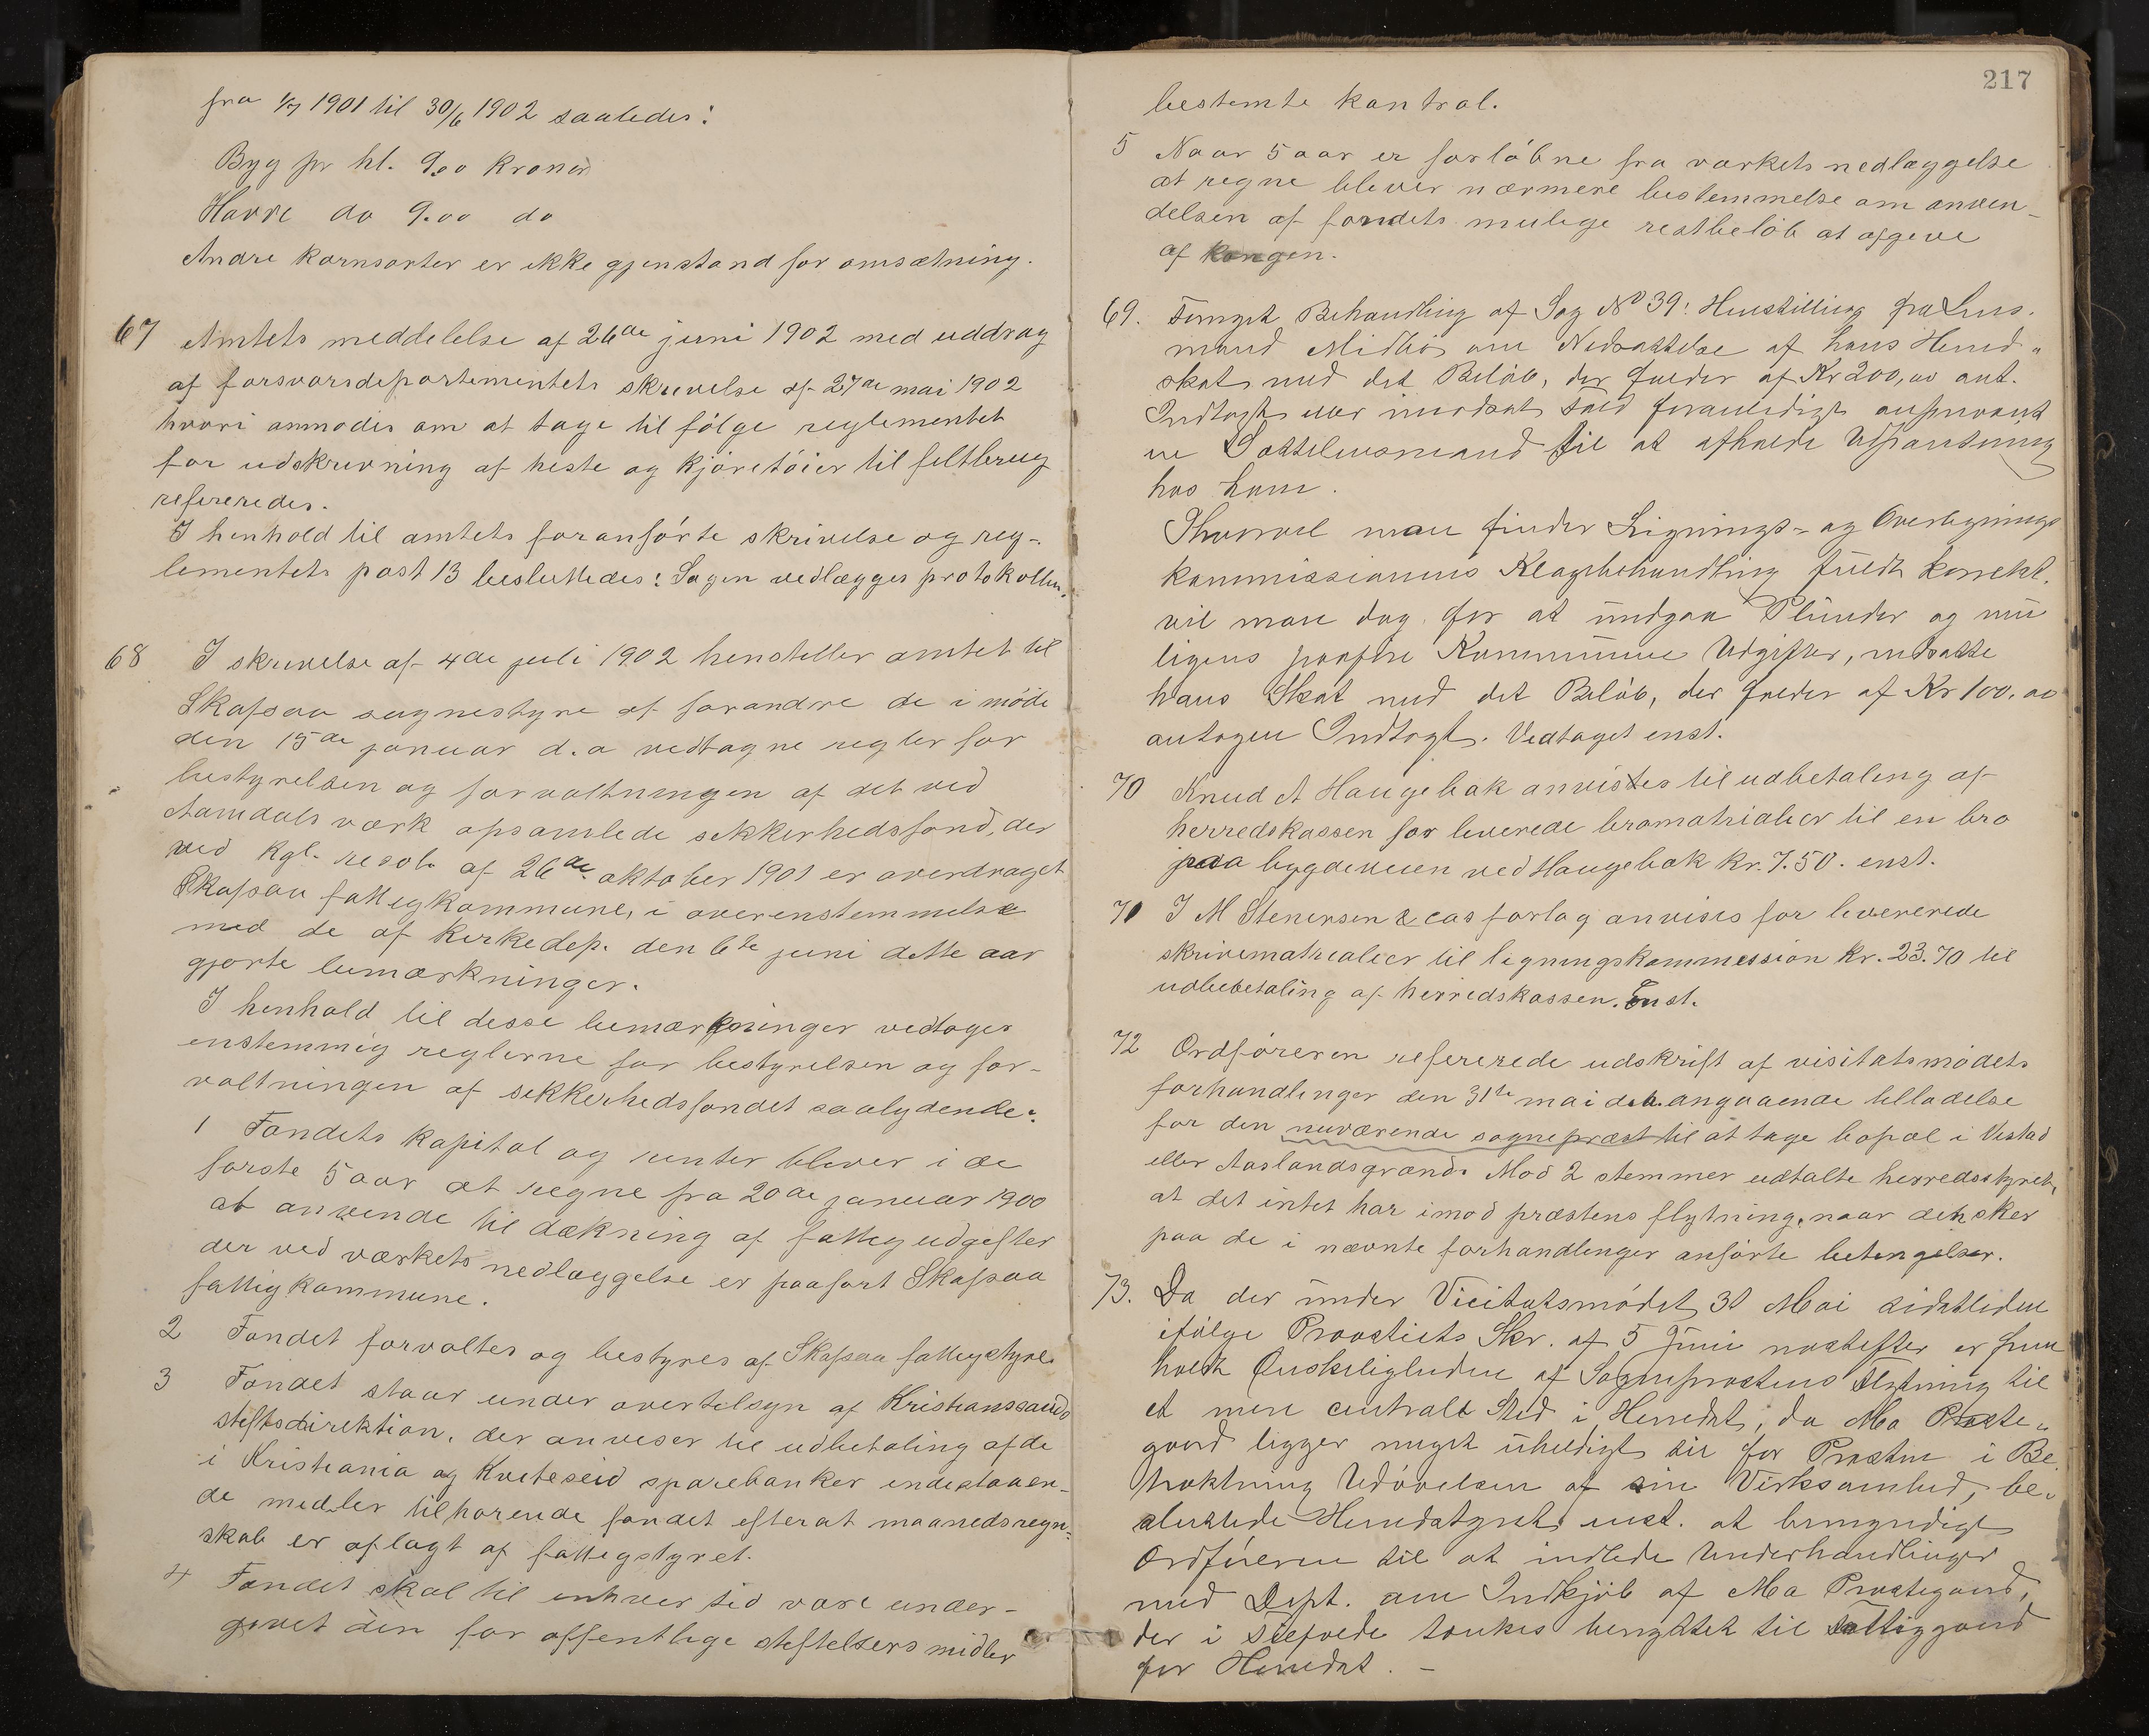 fra 1/7 1901 til 30/6 1902 saaledes:
Byg pr hl. 9.00 Kroner
Havre do 9.00 do
Andre kornsorter er ikke gjenstand for omsætning.
67 Amtets meddelelse af 26de juni 1902 med uddrag
af forsvarsdepartementets skrivelse af 27de mai 1902
hvori anmodes om at tage til følge reglementet
for udskrivning af heste og kjøretøier til feltbrug
refereredes.
I henhold til amtets foranførte skrivelse og reg-
lementets post 13 besluttedes: Sagen vedlægges protokollen.
68 I skrivelse af 4de juli 1902 henstiller amtet til
Skafsaa sognestyre at forandre de i møde
den 15de januar d.a vedtagne regler for
bestyrelsen og forvaltningen af det ved
Aamdals værk opsamlede sikkerhedsfond, der
ved kgl. resol. af 26de oktober 1901 er overdraget
Skafsaa fattigkommune, i overenstemmelse
med de af Kirkedep. den 6te juni dette aar
gjorte bemærkninger.
I henhold til disse bemærkninger vedtoges
enstemmig reglerne for bestyrelsen og for-
valtningen af sikkerhedsfondet saalydende:
1 Fondets kapital og renter bliver i de
første 5 aar at regne fra 20de januar 1900
at anvende til dækning af fattigudgifter
der ved værkets nedlæggelse er paaført Skafsaa
fattigkommune.
2 Fondet forvaltes og bestyres af Skafsaa fattigstyre.
3 Fondet staar under overtilsyn af Kristianssands
stiftsdirektion, der anviser til udbetaling af de
i Kristiania og Kviteseid sparebanker indestaaen-
de midler tilhørende fondet efterat maanedsregn-
skab er aflagt af fattigstyret.
4 Fondet skal til enhver tid være under-
givet den for offentlige stiftelsers midler
217
bestemte kontrol.
5 Naar 5 aar er forløbne fra værkets nedlæggelse
at regne bliver nærmere bestemmelse om anven-
delsen af fondets mulige restbeløb at afgive
af kongen.
69. Fornyet Behandling af Sag No 39: Henstilling fra Lens-
mand Midbø om Nedsættelse af hans Herred-
skat med det Beløb, der falder af Kr 200,00 ant.
Indtægt uar modsat fald foranlediget anspændt
en Sættelensmand til at afholde Udpantning
hos ham.
Ihvorvel man finder Lignings- og Overlignings
kommissionens Klagebehandling fuldt korrekt,
vil man dog, for at undgaa Plunder og mu
ligens paaføre Kommunen Udgifter, nedsætte
hans Skat med det Beløb, der falder af Kr 100,00
antagen Indtægt. Vedtaget enst.
70 Knud A Haugebak anvistes til udbetaling af
herredskassen for leverede bromatrialier til en bro
paa bygdeveien ved Haugebak kr. 7.50. enst.
71 I M Stenersen & cos forlag anvises for levererede
skrivematrialier til ligningskommission kr. 23.70 til
udbebetaling af herredskassen. Enst.
72 Ordføreren refererede udskrift af visitatsmødets
forhandlinger den 31te mai d.a. angaaende tilladelse
for den nuværende sogneprest til at tage bopæl i Vestad
eller Aaslandsgrænd. Mod 2 stemmer udtalte herredsstyret,
at det intet har imod præstens flytning, naar den sker
paa de i nævnte forhandlinger anførte betingelser.
73. Da der under Vicitatsmødet 31 Mai sidstleden
ifølge Provstiets Skr. af 5 Juni næstefter er frem
holdt Ønskeligheden af Sogneprestens Flytning til
et mere centralt Sted i Herredet, da Mo Præste-
gaard ligger meget uheldigt til for Præsten i Be
tragtning Udøvelsen af sin Virksomhed, be-
sluttede Herredstyret enst. at bemyndige
Ordføreren til at indlede Underhandlinger
med Dept. om Indkjøb af Mo Præstegaard,
der i Tilfælde tænkes benyttet til Fattiggaard
for Herredet. –